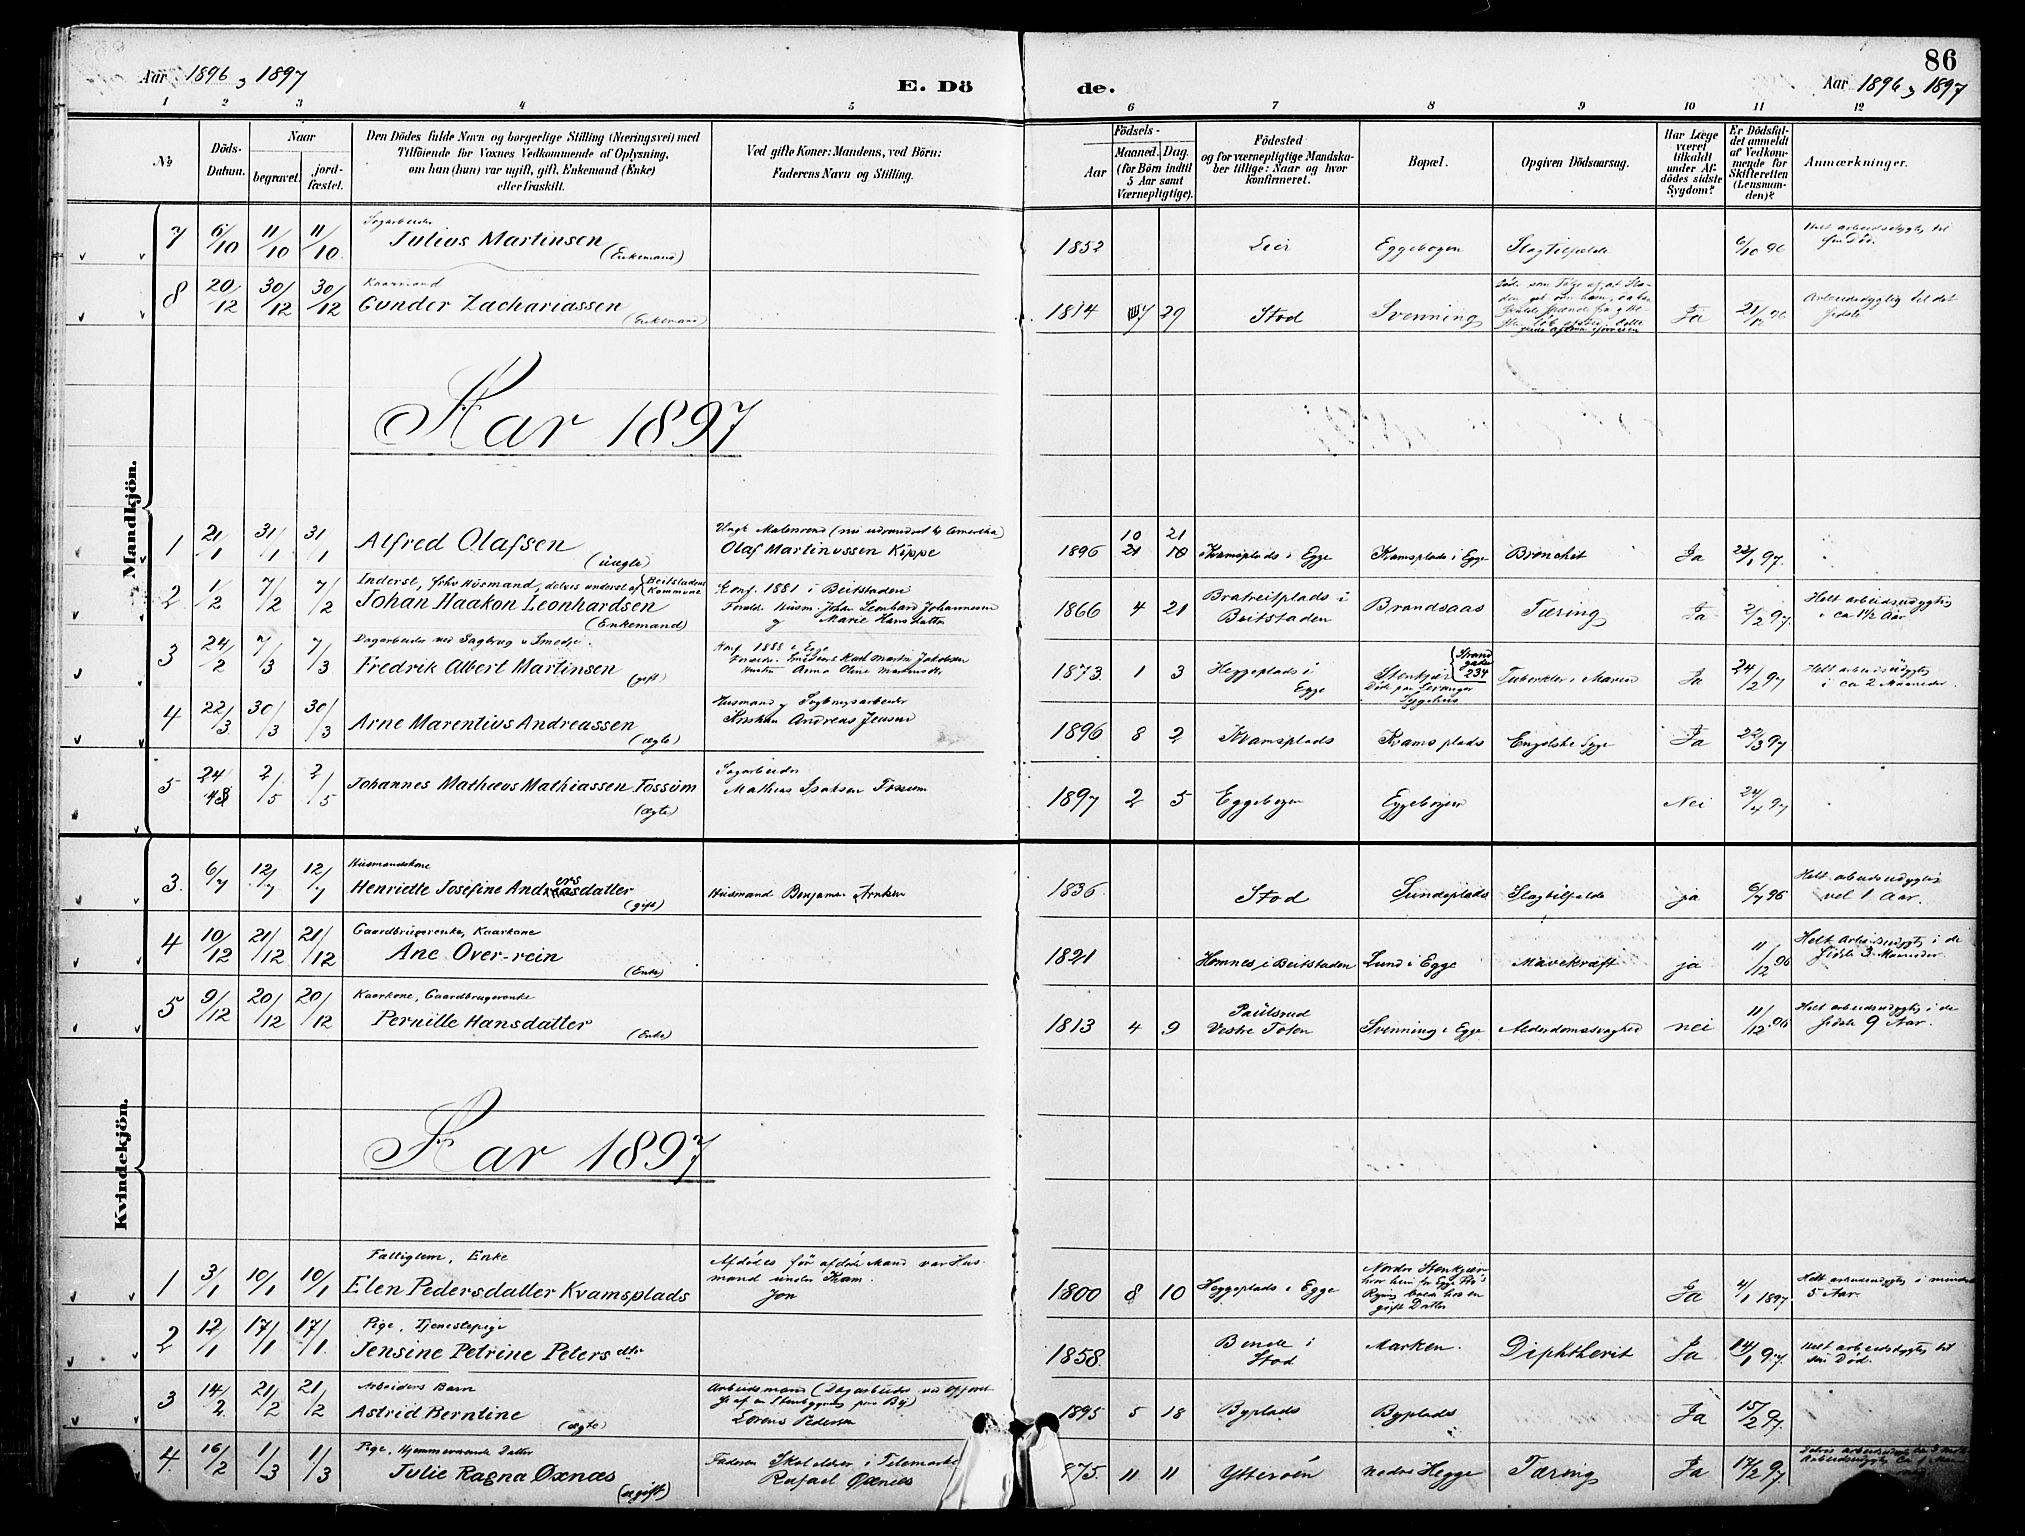 86
Aar 1896, 1897
E. Dö
de.
Aar 1896, 1897
1 2 3 4 5 6 7 8 9 10 11 12
№
Döds-Datum.
Naar
begravet.
jord-fæstet.
Den Dödes fulde Navn og borgerlige Stilling (Næringsvei) med
Tilföiende for Voxnes Vedkommende af Oplysning,
om han (hun) var ugift, gift, Enkemand (Enke)
eller fraskilt.
Ved gifte Koner: Mandens, ved Börn:
Faderens Navn og Stilling.
Födsels-
Aar
Maaned. Dag.
(for Börn indtil
5 Aar samt
Værnepligtige).
Födested
og for værnepligtige Mandska-
ber tillige: Naar og hvor
konfirmeret.
Bopæl.
Opgiven Dödsaarsag.
Har Læge
været
tilkaldt
under Af-
dödes sidste
Sygdom?
Er Dödsfal-
det anmeldt
af Vedkom-
mende for
Skifteretten
(Lensman-
den)?
Anmærkninger.
Mandkjön.
7 6/10 11/10 11/10 Sagarbeider
Julius Martinsen
(Enkemand)
1852 Lier Eggebogen Slagtilfælde 6/10 96 Helt arbeidsdygtig til
sin Död.
8 20/12 30/12 30/12 Kaarmand
Gunder Zachariassen
(Enkemand)
1814 7 29 Stod Svenning Ja 21/12 96 Arbeidsdygtig til det
sidste
Aar 1897
1 21/1 31/1 31/1 Alfred Olafsen
(uægte)
Ungk. Matersrend (nu udvandret til Amerika)
Olaf Martinussen Kippe
1896 10 21
21 10 Kvamsplads i Egge Kvamsplads i Egge Bronchit Ja 22/1 97.
2 1/2 7/2 7/2 Inderst, forhv Husmand, delvis underst. af Beitstadens Kommune
Johan Haakon Leonhardsen
(Enkemand)
Konf. 1881 i Beitstaden
Foræld. Husm. Johan Leonhard Johannesen
og Marie Hansdatter
1866 4 21 Bratreitplads i
Beitstaden Brandsaas Tæring Ja 2/2 97. Helt arbeidsudygtig
i ca 1½ Aar
3 24/2 7/3 7/3 Dagarbeider ved Sagbrug & Smedje
Fredrik Albert Martinsen
(gift)
Konf 1888 i Egge
1873. 1 3 Heggeplads i
Egge Stenkjær Strandgaden 234
Döde paa Levanger
Sygehus Tuberkler i Maven Ja 24/2 97 Helt arbeidsudygtig
i ca 2 Maaneder.
4 22/3 30/3 30/3 Arne Marentius Andreassen
(ægte)
Husmand og Sagbrugsarbeider
Kristian Andreas Jensen
1896 8 2 Kvamsplads Kvamsplads Engelske Syge Ja 22/3 97
5 24/4 2/5 2/5 Johannes Mathæus Mathiassen Fossum
(ægte)
Sagarbeider
Mathias Isaksen Fossum
1897 2 5 Eggebogen Eggebogen Nei 24/4 97
Kvindekjön.
3. 6/7 12/7 12/7 Husmandskone
Henriette Josefine Andersdatter
(gift)
Husmand Benjamin Arntsen
1836 Stod Lundsplads Slagtilfælde ja 6/7 96 Helt arbeidsudygtig
vel 1 Aar.
4 10/12 21/12 21/12 Gaardbrugerenke, Kaarkone
Ane Over-rein
(Enke)
1821 Hemnes i Beitstaden Lund i Egge Mavekræft ja 11/12 96 Helt Arbeidsudygtig i de
sidste 3 Maaneder
5 9/12 20/12 20/12 Kaarkone, Gaardbrugerenke
Pernille Hansdatter
(Enke)
1813 4 9 Paulsrud
Vestre Toten Svenning i Egge Alderdomssvaghed nei 11/12 96 Helt Arbeidsudygtig i de
sidste 9 Aar.
Aar 1897
1 3/1 10/1 10/1 Fattiglem, Enke
Elen Pedersdatter Kvamsplads
Afdödes før afdöde Mand var Hus-
mand under Kvam.
Jon
1800 8 10 Heggeplads i Egge Nordre Stenkjær
Ja 4/1 1897 Helt arbeidsudygtig i mindst
5 Aar.
2 12/1 17/1 17/1 Pige, Tjenestepige
Jensine Petrine Petersdtr
1858. Bende i
Stod Marken. Diphtherit Ja 14/1 97. Helt arbeidsdygtig til
sin Död.
3 14/2 21/2 21/2 Arbeiders Barn
Astrid Berntine
(ægte)
Lorens Pedersen
1895 5 18 Byplads Byplads Ja 15/2 97.
4. 16/2 1/3 1/3 Pige, Hjemmeværende Datter
Julie Ragna Øxnæs
(ugift)
Faderen Skoleholder i Telemarken
Rafael Øxnæs
1875. 11 11 Ytterøen nedre Hegge Tæring Ja 17/2 97